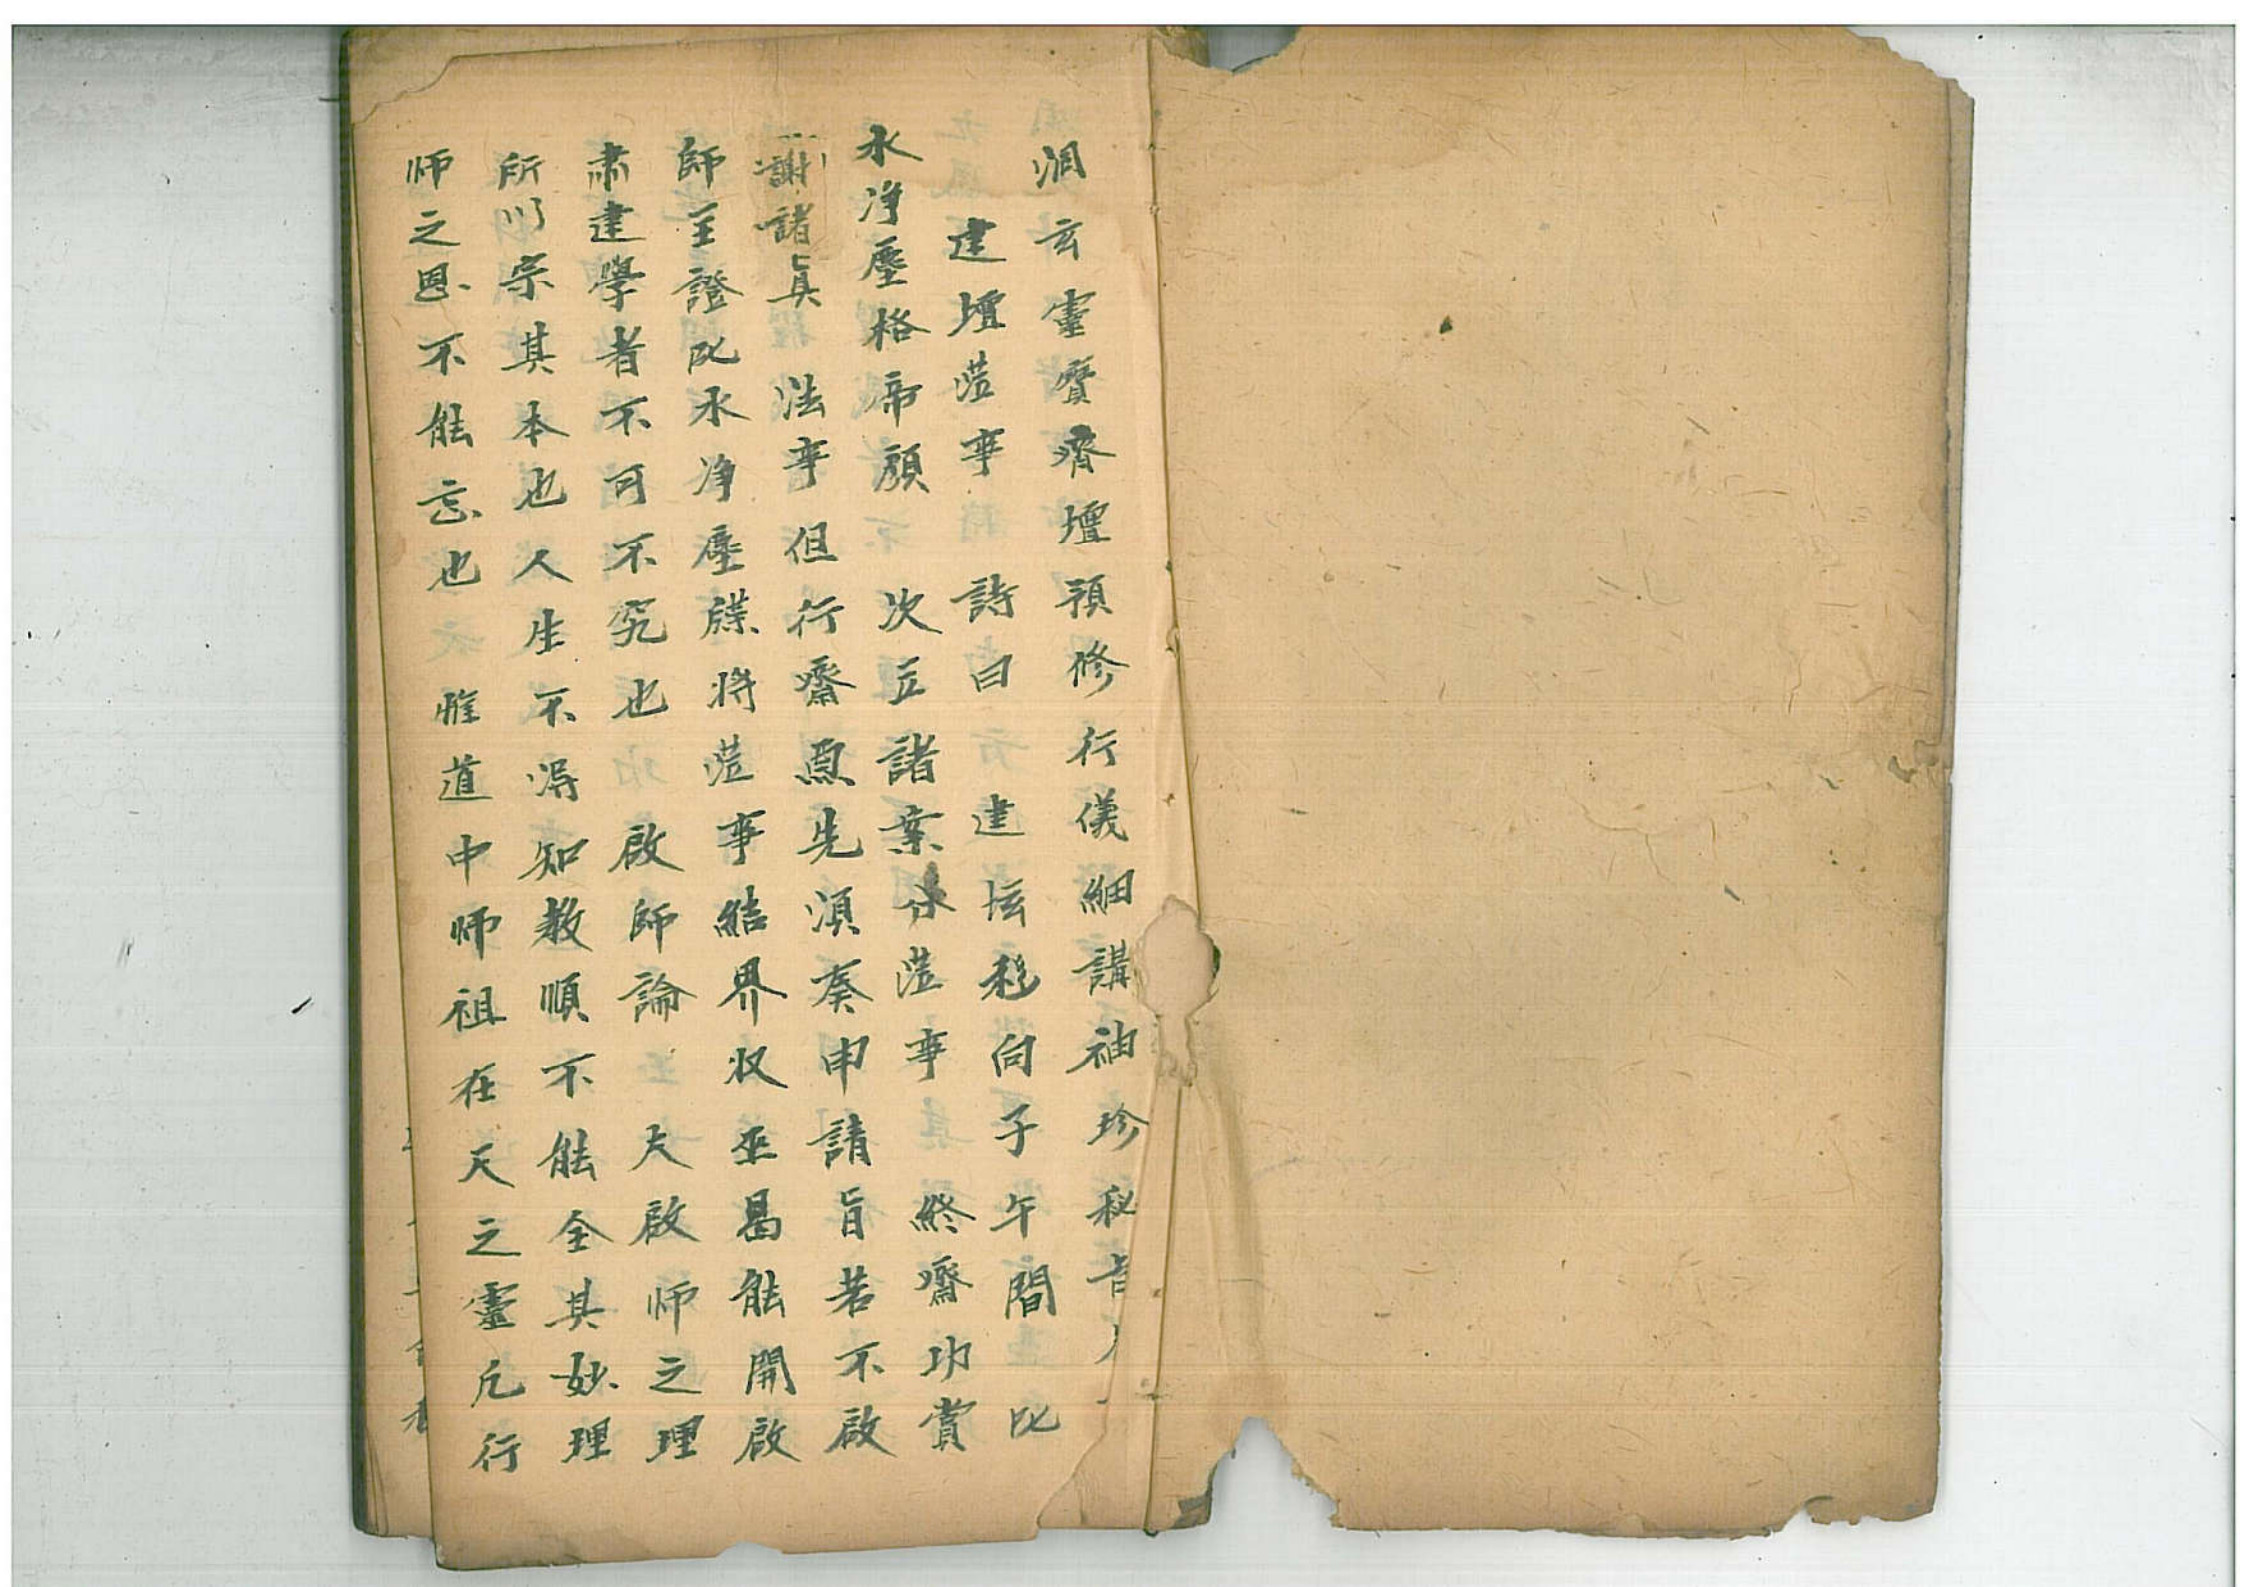 洞玄靈寶齋壇預修行儀細講袖珍秘旨
建壇涖事 詩曰 建坛移向子午間 以
水净壓格帝顏 次立諸案 涖事 終齋功賞
謝諸真 法事但行齋 先須奏申請旨若不啟
師主證以水净壓牒将涖事結界収巫曷能開啟
肅建學者不可不究也 啟師論 大啟师之理
所以宗其本也人生不得知教順不能全其妙理
师之恩不能忘也 惟道中师祖在天之靈凢行